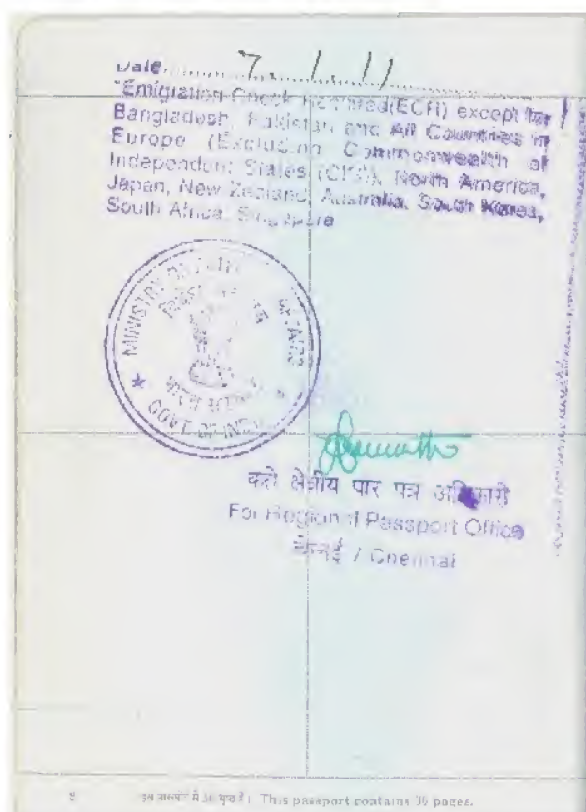 Date 7. 1. 11
"Emigration Check Required(ECR) except for
Bangladesh, Pakistan and All Countries in
Europe (Excluding Commonwealth of
Independent States (CIS)), North America,
Japan, New Zealand, Australia, South Korea,
South Africa, Singapore
MINISTRY OF AFFAIRS
GOVT. OF INDIA
क्षेत्रीय पार पत्र अधिकारी
For Regional Passport Office
चेन्नई / Chennai
8 इस पासपोर्ट में 36 पृष्ठ हैं। This passport contains 36 pages.